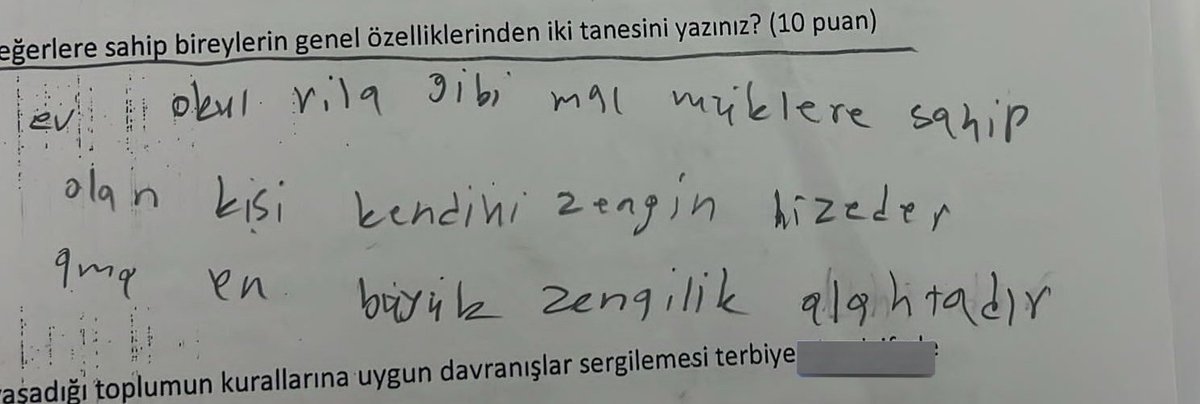 eğerlere sahip bireylerin genel özelliklerinden iki tanesini yazınız? (10 puan)
ev okul vila gibi mal mülklere sahip
olan kişi kendini zengin hizeder
ama en büyük zengilik alahtadır
aşadığı toplumun kurallarına uygun davranışlar sergilemesi terbiye